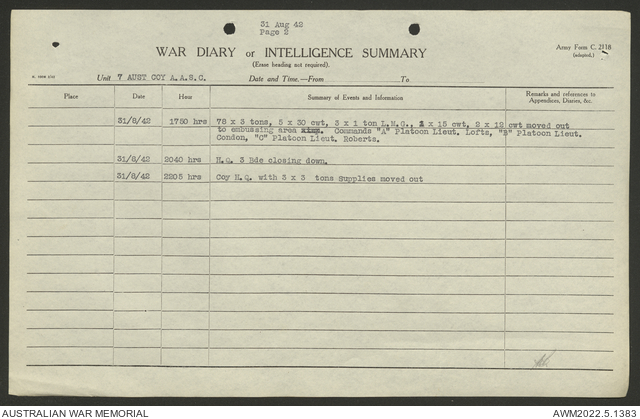 31 Aug 42
Page 2
WAR DIARY or INTELLIGENCE SUMMARY
(Erase heading not required).
Army Form C. 2118
(adapted.)
Unit 7 AUST COY A.A.S.C. Date and Time.—From To
Place Date Hour Summary of Events and Information Remarks and references to
Appendices, Diaries, &c.
31/8/42 1750 hrs 78 x 3 tons, 5 x 30 cwt, 3 x 1 ton L.M.G., 1 x 15 cwt, 2 x 12 cwt moved out
to embussing area Commands "A" Platoon Lieut. Lofts, "B" Platoon Lieut.
Condon, "C" Platoon Lieut. Roberts.
31/8/42 2040 hrs H.Q. 3 Bde closing down.
31/8/42 2205 hrs Coy H.Q. with 3 x 3 tons Supplies moved out
AUSTRALIAN WAR MEMORIAL AWM2022.5.1383